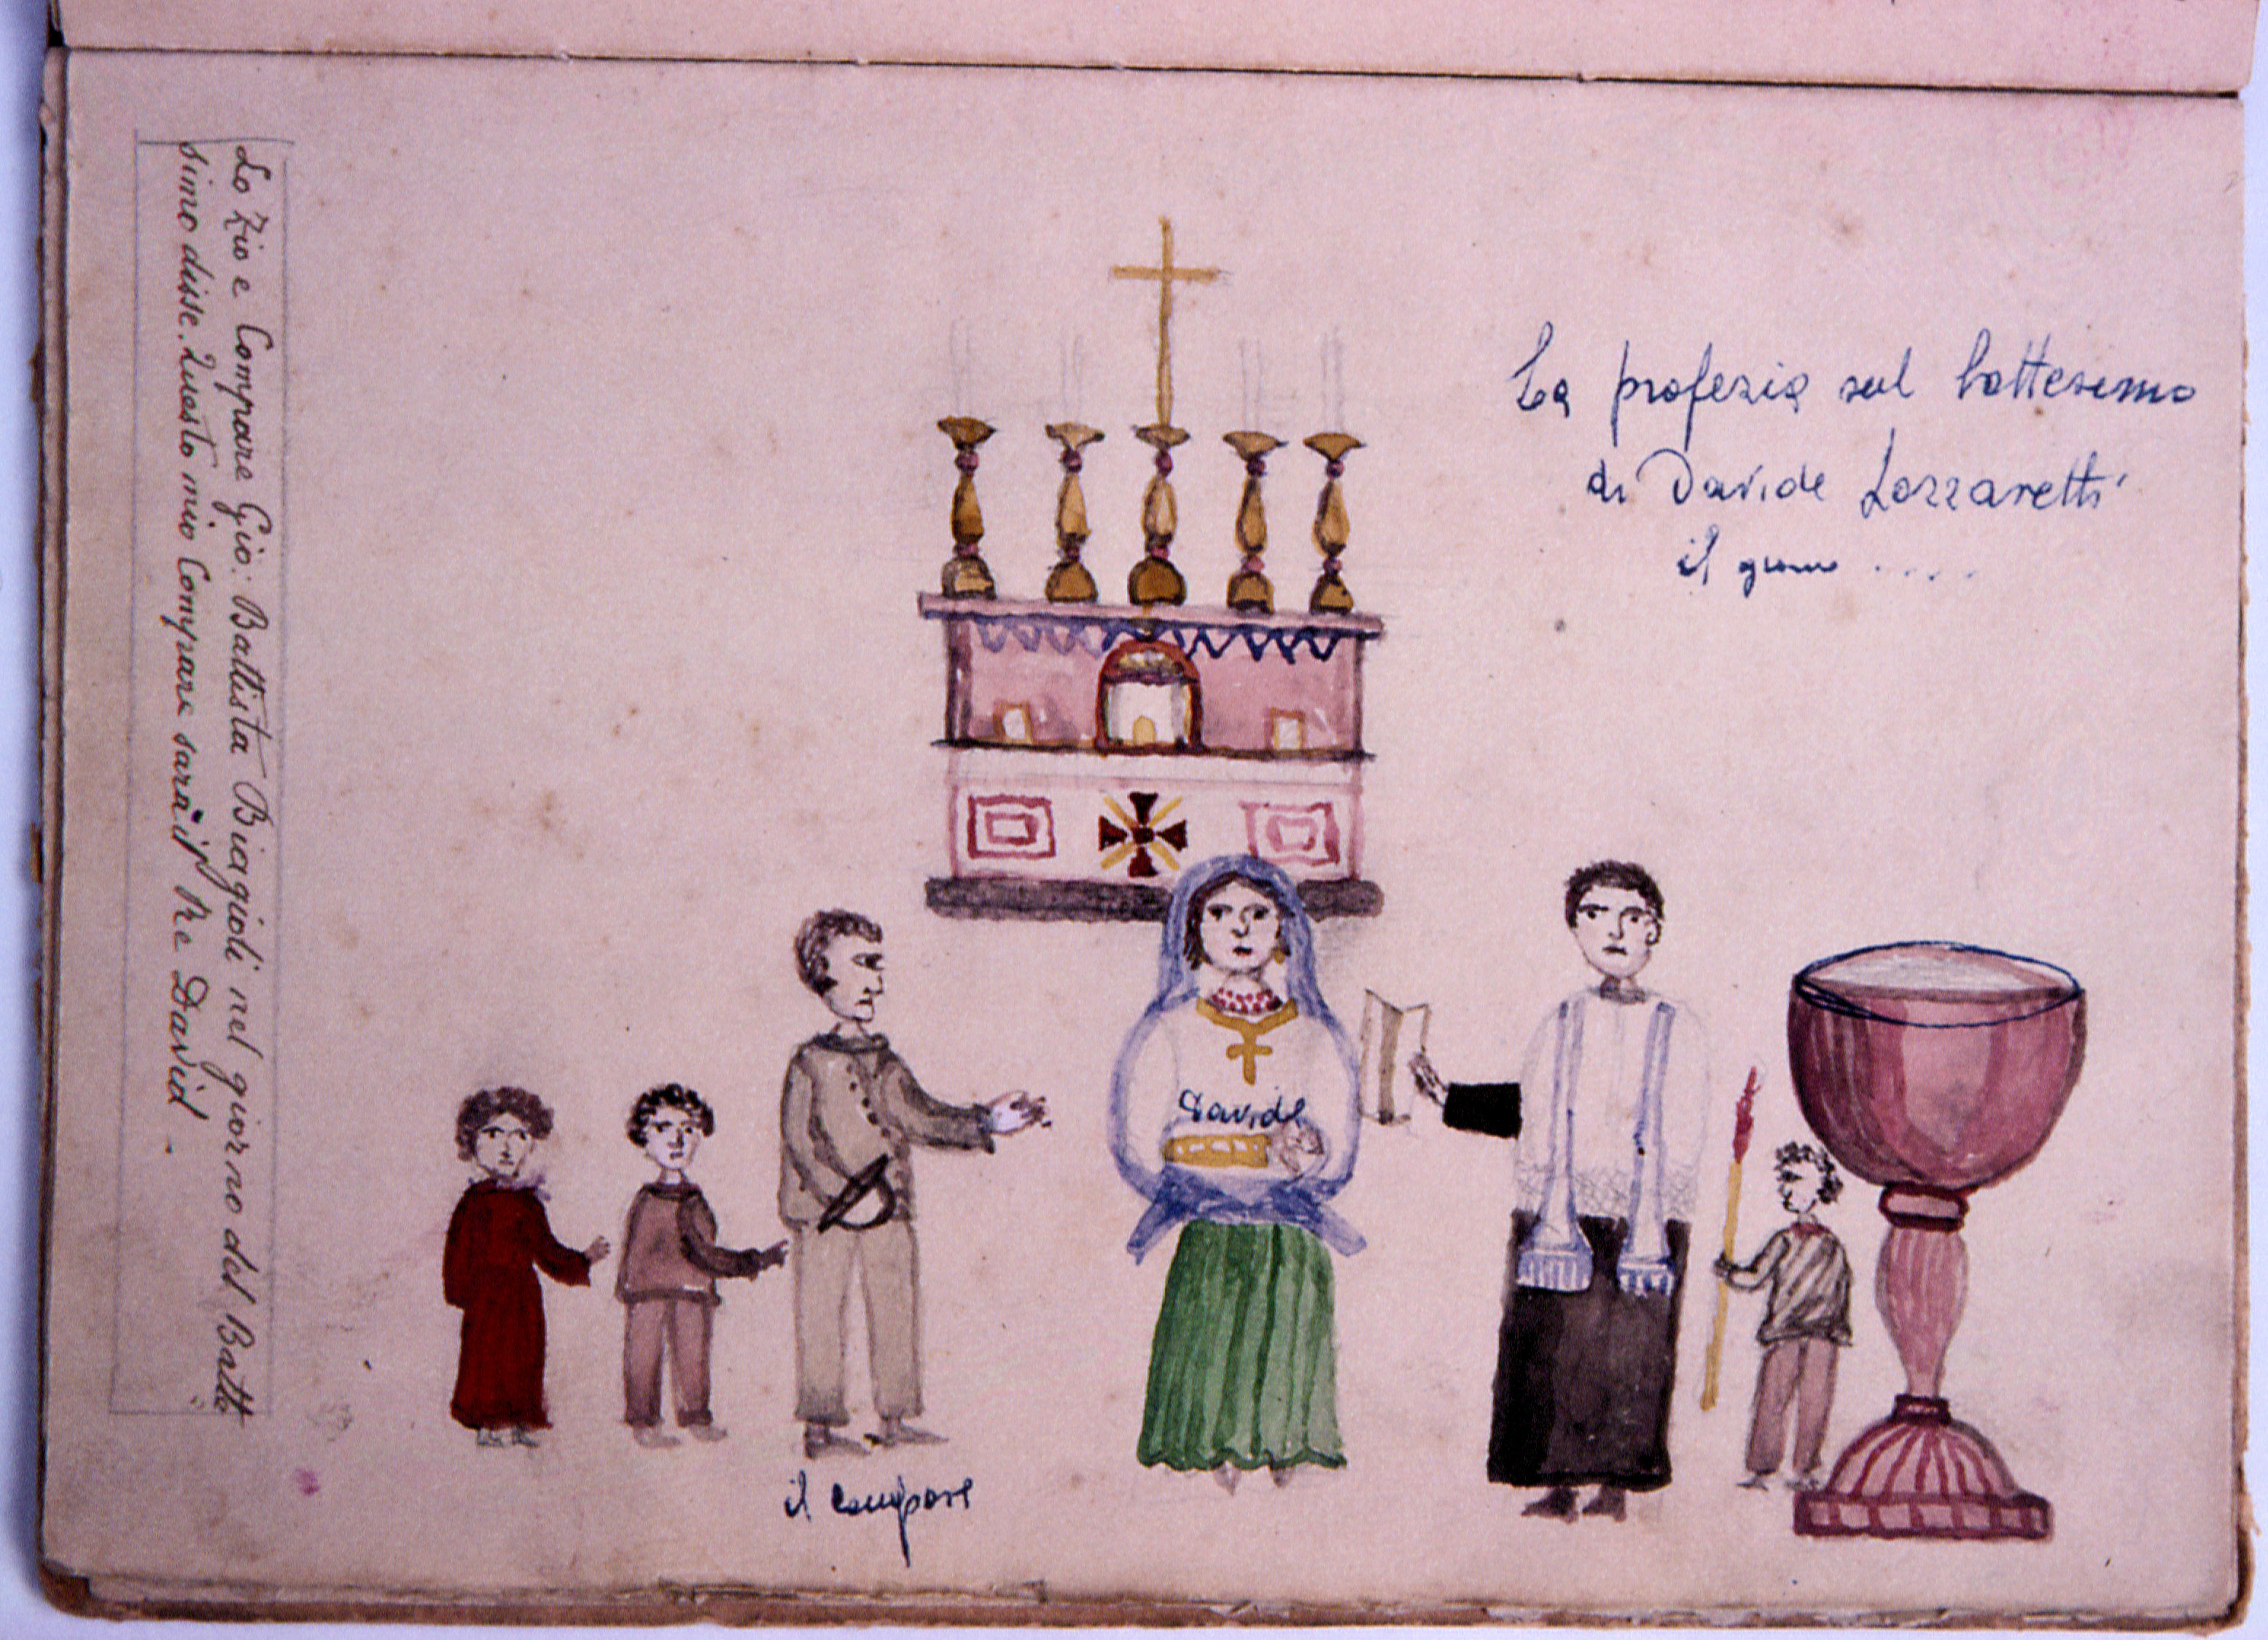 Lo Zio e Compare Gio: Battista Biagioli nel giorno del Batte
simo disse. Questo mio Compare sarà il Re David.
La profezia sul battesimo
di Davide Lazzaretti
il giorno ....
Davide
il compare